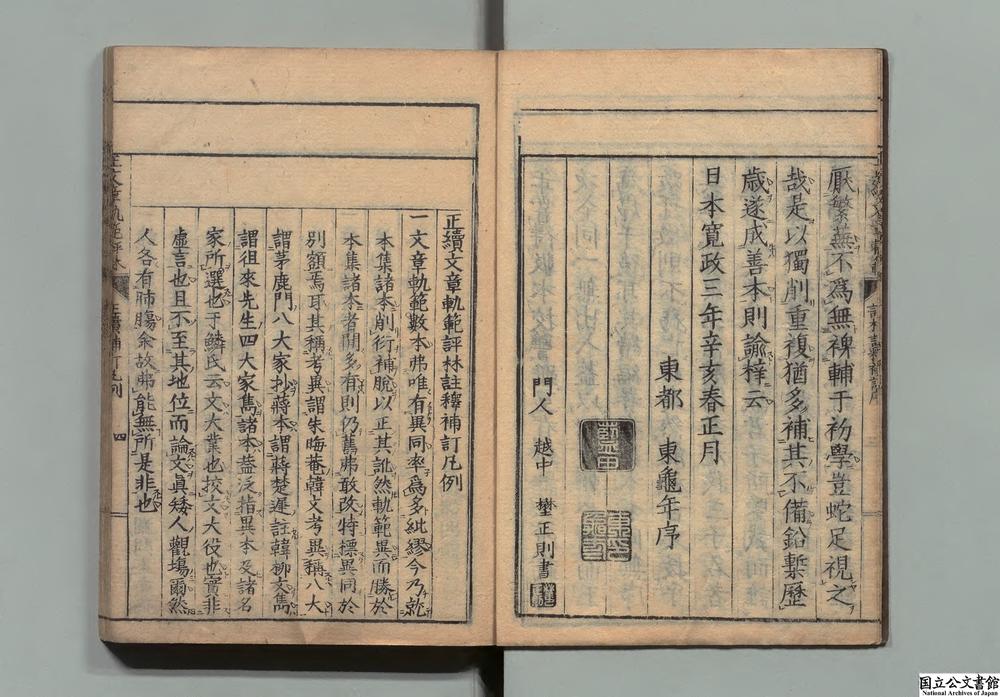 厭繁蕪不爲無裨輔于初學豈蛇足視之
哉是以獨削重複猶多補其不備鉛槧歷
歳遂成善本則諭梓云
日本寛政三年辛亥春正月
東都　東龜年序
門人　越中　埜正則書
正續文章軌範評林註釋補訂凡例
一文章軌範數本弗唯有異同率爲多紕繆今乃就
本集諸本削衍補脫以正其訛然軌範異而勝於
本集諸本者間多有則仍舊弗敢改特標異同於
別額焉耳其稱考異謂朱晦菴韓文考異稱八大
謂茅鹿門八大家抄蔣本謂蔣楚遲註韓柳文雋
謂徂來先生四大家雋諸本蓋泛指異本及諸名
家所選也于鱗氏云文大業也挍文大役也實非
虛言也且不至其地位而論文眞矮人觀塲爾然
人各有肺膓余故弗能無所是非也
四
国立公文書館
National Archives of Japan